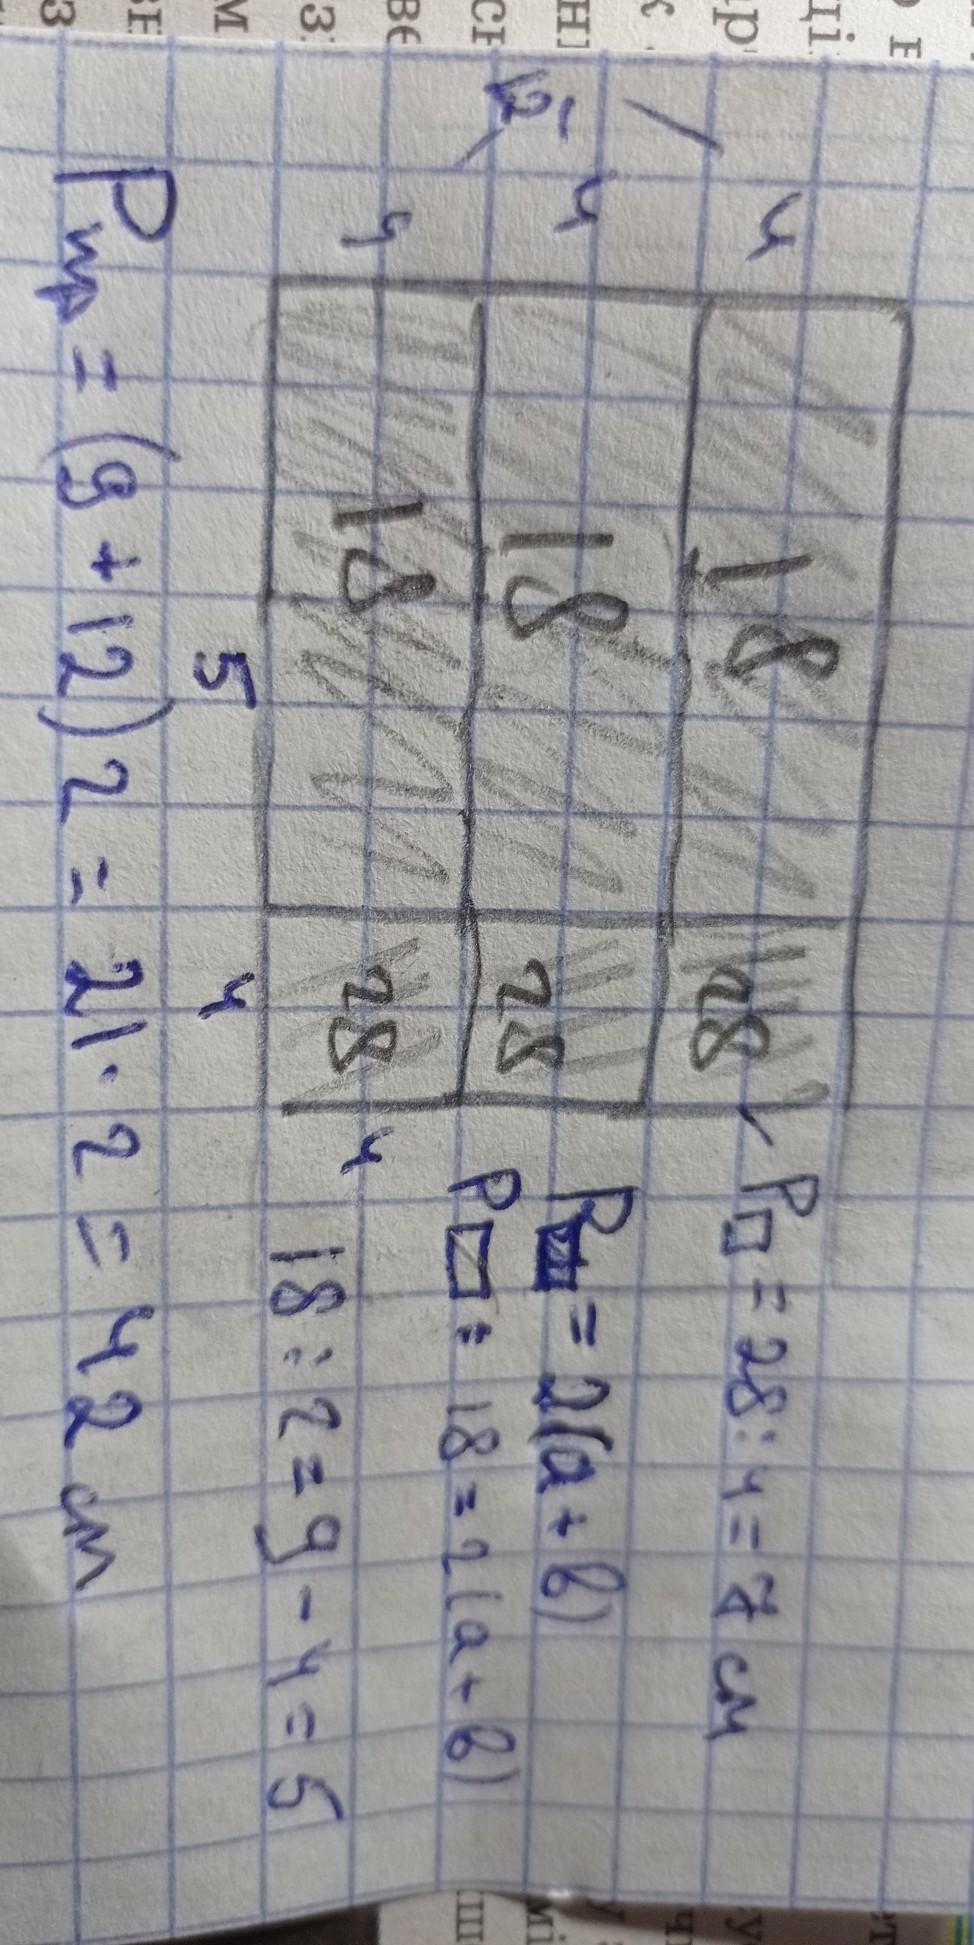 4
4
12
4
18 28
18 28
18 28
4
5
4
P□ = 28 : 4 = 7 см
P = 2(a + b)
P▭ : 18 = 2(a + b)
18 : 2 = 9 - 4 = 5
Pпр = (9 + 12) 2 = 21 · 2 = 42 см